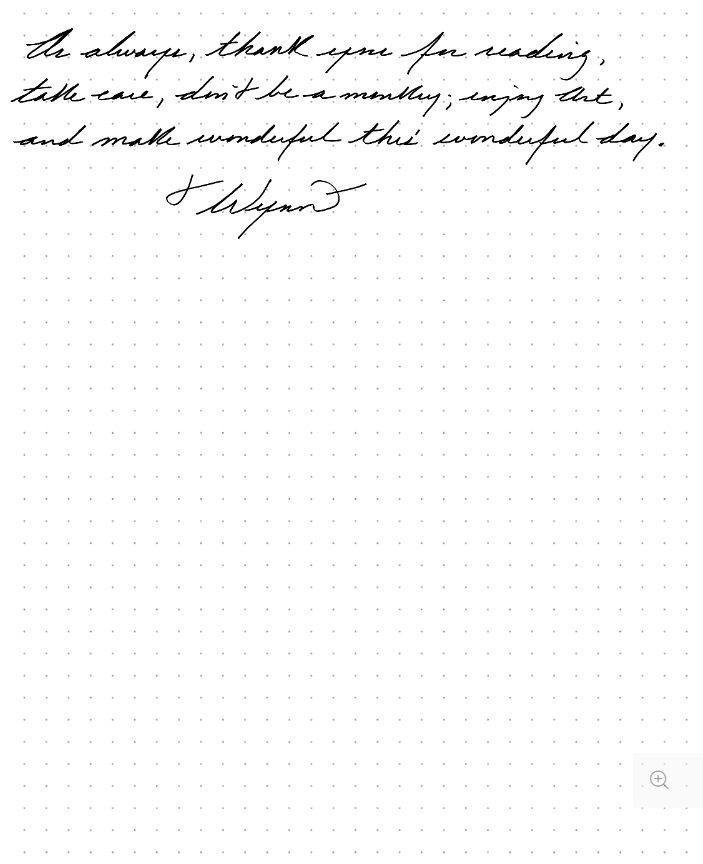 As always, thank you for reading,
take care, don't be a monkey; enjoy Art,
and make wonderful this wonderful day.
Wynn